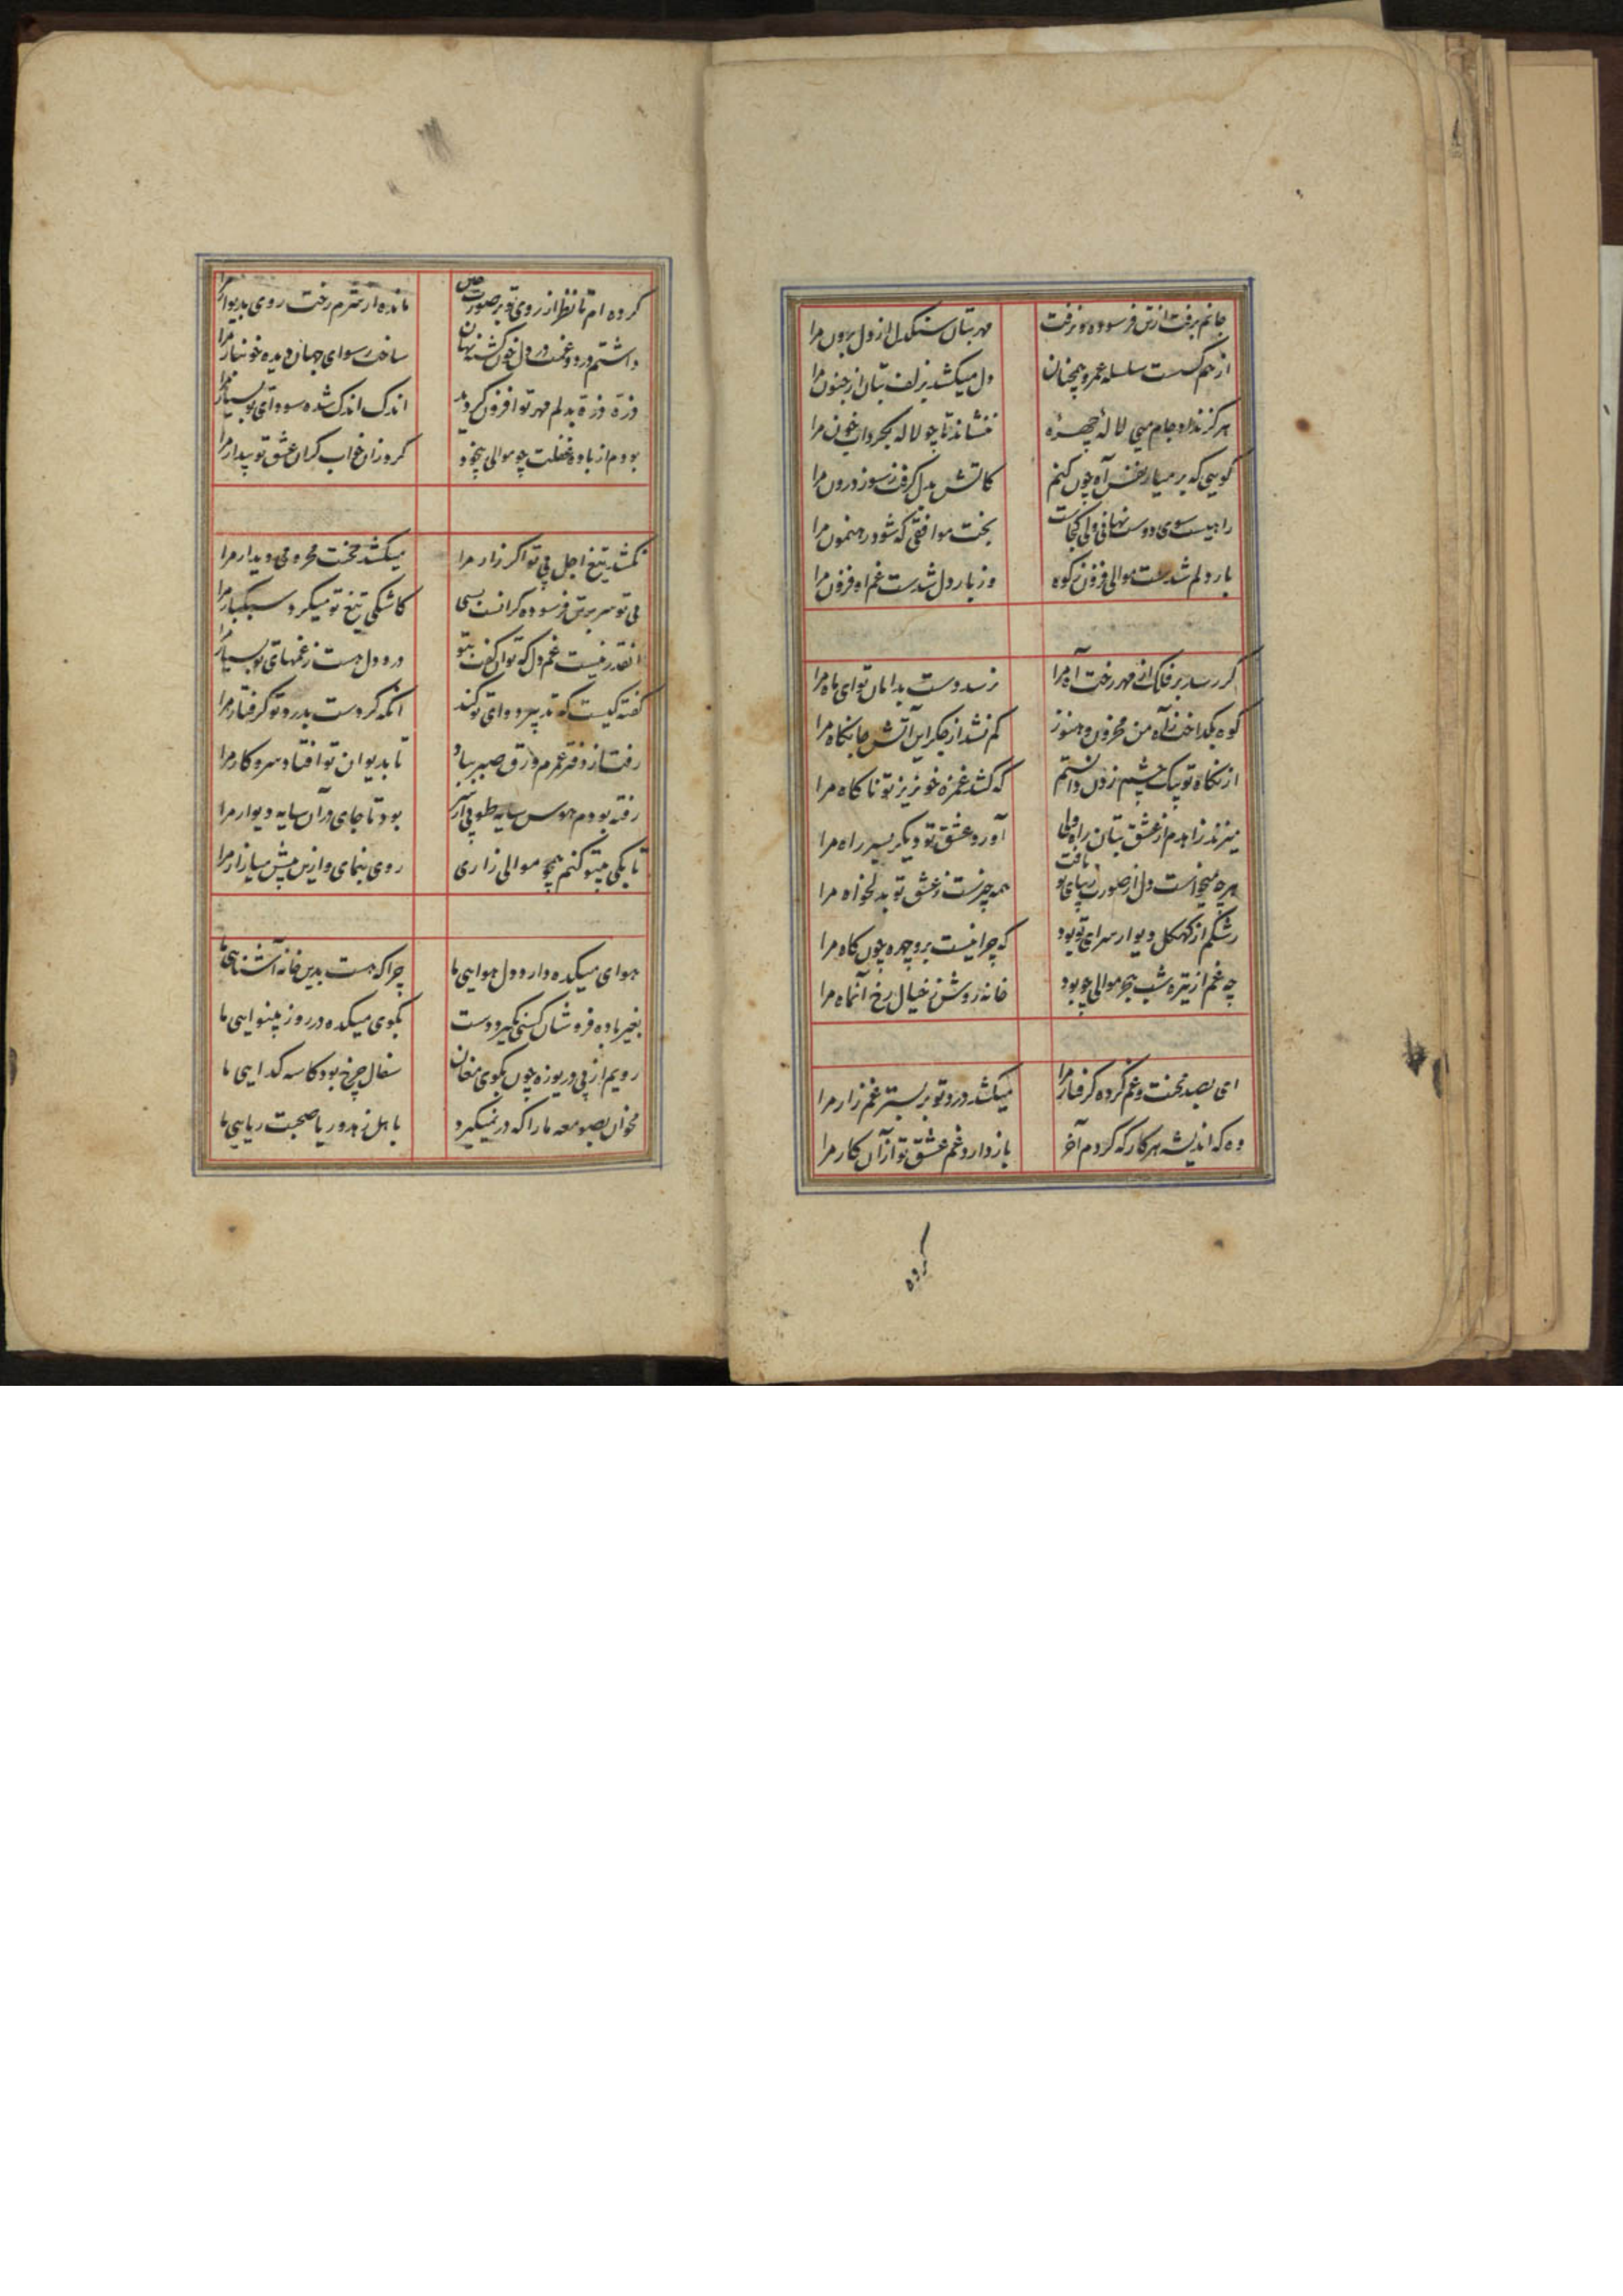 جانم برفت از تن فرسوده و نرفت
مهر بتان سنکدل از دل برون مرا
از هم کسست سلسله عمر و همچنان
دل میکشد بزلف بتان از جنون مرا
هرکز نداد جام میی لاله چهره
ننشاند تا چو لاله بخون مرا
کویی که بر میار نفس آه چون کنم
کاتش بدل کرفت ز سوز درون مرا
راهیست سوی دوست نهانی ولی کجاست
بخت موافقی که شود رهنمون مرا
بار دلم شدست موالی فزون ز کوه
وز بار دل شدست غم او فزون مرا
کر رسد بر فلک از مهر رخت آه مرا
نرسد دست بدامان تو ای ماه مرا
کوه بکداخت ز آه من محزون و هنوز
کم نشد از جکر این آتش جانکاه مرا
از نکاه تو بیک چشم زدن دانستم
که کشد غمزه خونریز تو ناکاه مرا
میزند زاهدم از عشق بتان راه ولی
آورد عشق تو دیکر بسر راه مرا
هرچه میخواست دل از صورت زیبای تو یافت
همه چیزست ز عشق تو بدلخواه مرا
رشکم از کهکل دیوار سرای تو بود
که چرا نیست برو چهره چون کاه مرا
چه غم از تیره شب هجر موالی چو بود
خانه روشن ز خیال رخ آنماه مرا
ای بصد محنت و غم کرده کرفتار مرا
میکشد درد تو بر بستر غم زار مرا
وه که اندیشه هر کار که کردم آخر
باز دارد غم عشق تو از آن کار مرا
کرده
کرده ام تا نظر از روی تو بر صورت
مانده از شرم رخت روی بدیوار مرا
داشتم درد و غمت در دل خون کشته نهان
ساخت رسوای جهان دیده خونبار مرا
ذره ذره بدلم مهر تو افزون کردید
اندک اندک شده سودای تو بسیار مرا
بودم از باده غفلت چو موالی بیخود
کرد زان خواب کران عشق تو بیدار مرا
نکشد تیغ اجل بی تو اکر زار مرا
میکشد محنت محرومی دیدار مرا
بی تو سر بر تن فرسوده کرانست بسی
کاشکی تیغ تو میکرد سبکبار مرا
انقدر نیست غم دل که توان کفت بتو
درد دل هست ز غمهای تو بسیار مرا
کفته کیست که تدبیر دوای تو کند
انکه کردست بدرد تو کرفتار مرا
رفت از دفتر عمرم ورق صبر بباد
تا بدیوان تو افتاد سر و کار مرا
رفته بودم هوس سایه طوبی از سر
بود تا جای در آن سایه دیوار مرا
تا بکی بیتو کنم همچو موالی زاری
روی بنمای و ازین بیش میازار مرا
هوای میکده دارد دل هوایی ما
چرا که هست بدین خانه آشنایی ما
بغیر باده فروشان کسی نکیرد دست
بکوی میکده در روز بینوایی ما
رویم از پی دریوزه چون بکوی مغان
سفال چرخ بود کاسه کدایی ما
مخوان بصومعه ما را که در نمیکیرد
باهل زهد و ریا صحبت ریایی ما